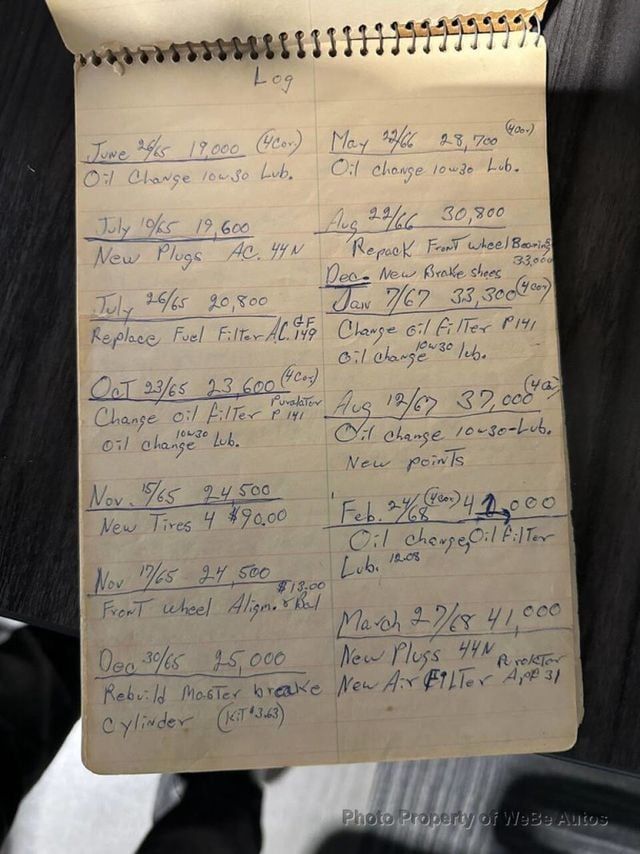 Log
June 26/65 19,000 (4Cor)
Oil Change 10w30 Lub.
July 10/65 19,600
New Plugs AC. 44N
July 26/65 20,800
Replace Fuel Filter A.C. GF 149
Oct 23/65 23,600 (4Cor)
Change oil filter Purolator P.141
oil change 10w30 Lub.
Nov. 15/65 24500
New Tires 4 $90.00
Nov 17/65 24,500
Front wheel Alignm. & Bal $13.00
Dec 30/65 25,000
Rebuild Master breake
cylinder (Kit $3.63)
May 22/66 28,700 (4Cor)
Oil change 10w30 Lub.
Aug 22/66 30,800
Repack Front wheel Bearing
Dec. New Brake shoes 33,000
Jan 7/67 33,300 (4Cor)
Change oil filter P141
Oil change 10w30 lub.
Aug 12/67 37,000 (4Cor)
Oil change 10w30-Lub.
New points
Feb. 24/68 (4Cor) 41,000
Oil change, Oil filter
Lub. 12.08
March 27/68 41,000
New Plugs 44N
New Air Filter Purolator 31
Photo Property of WeBe Autos